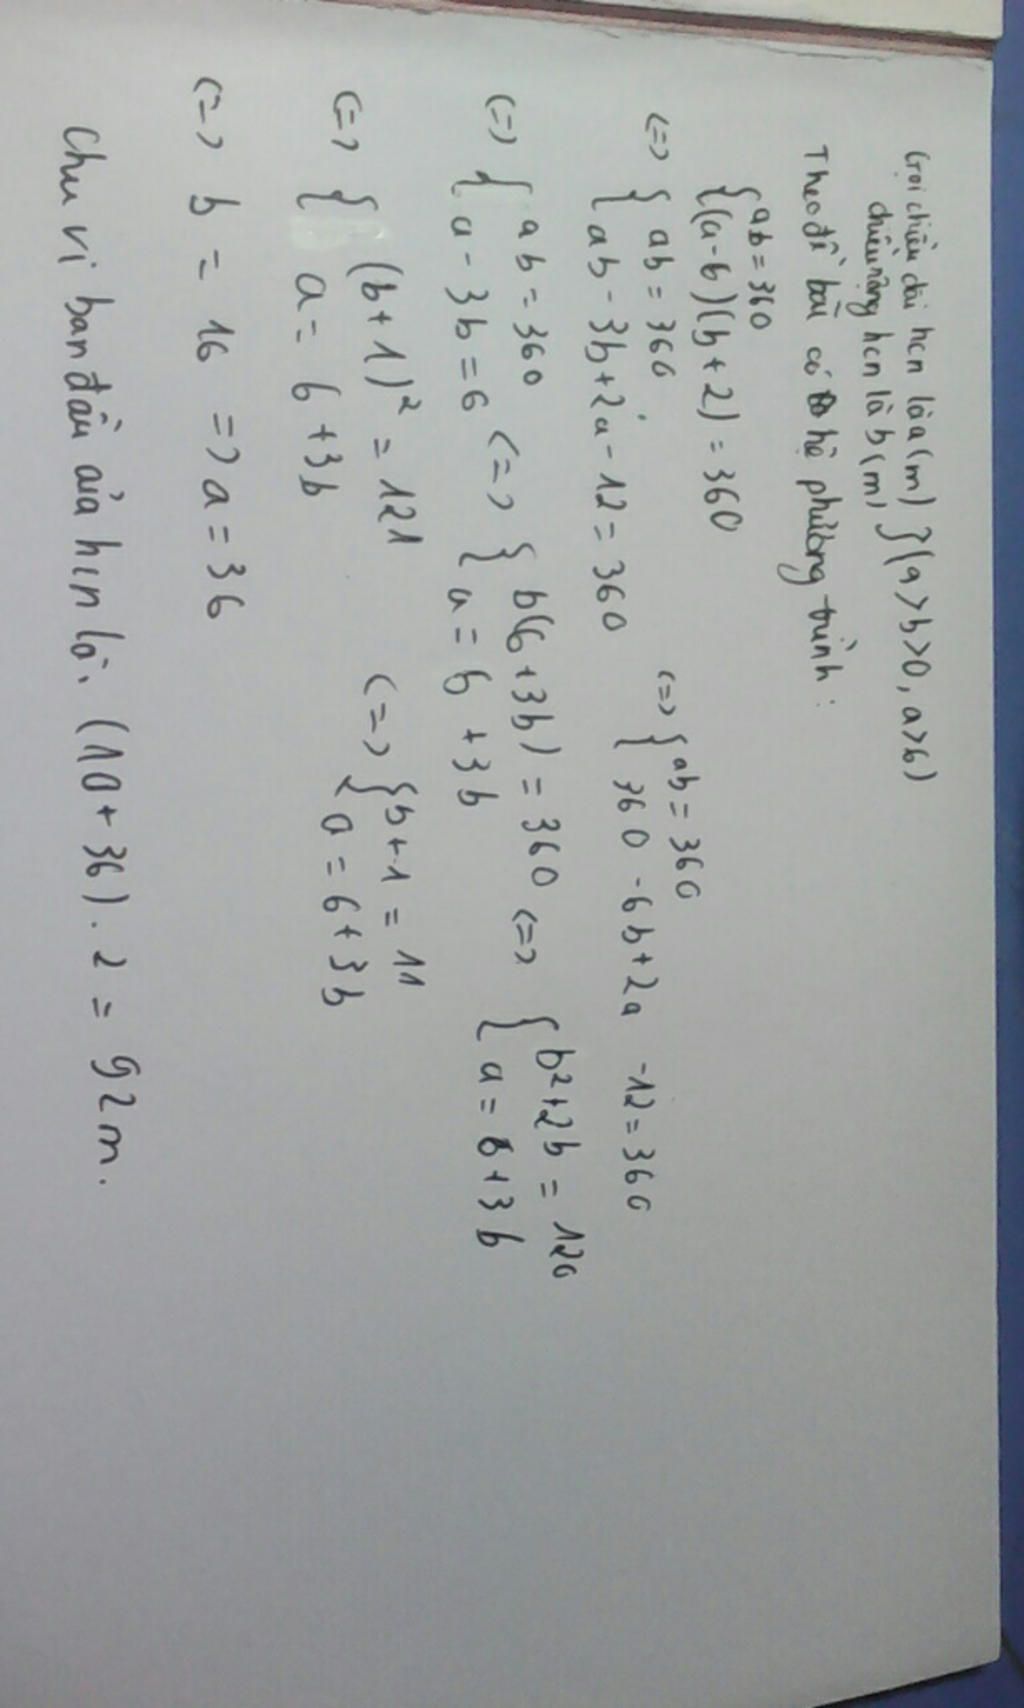 Gọi chiều dài hcn là a(m) } (a>b>0, a>6)
chiều rộng hcn là b(m)
Theo đề bài có hệ phương trình:
{ ab = 360
(a-6)(b+2) = 360
<=> { ab = 360
ab - 3b + 2a - 12 = 360
<=> { ab = 360
360 - 6b + 2a - 12 = 360
<=> { ab = 360
a - 3b = 6
<=> { b(6+3b) = 360
a = 6 + 3b
<=> { b²+2b = 120
a = 6+3b
<=> { (b+1)² = 121
a = 6 + 3b
<=> { b+1 = 11
a = 6+3b
<=> b = 10 => a = 36
Chu vi ban đầu của hcn là: (10+36).2 = 92m.